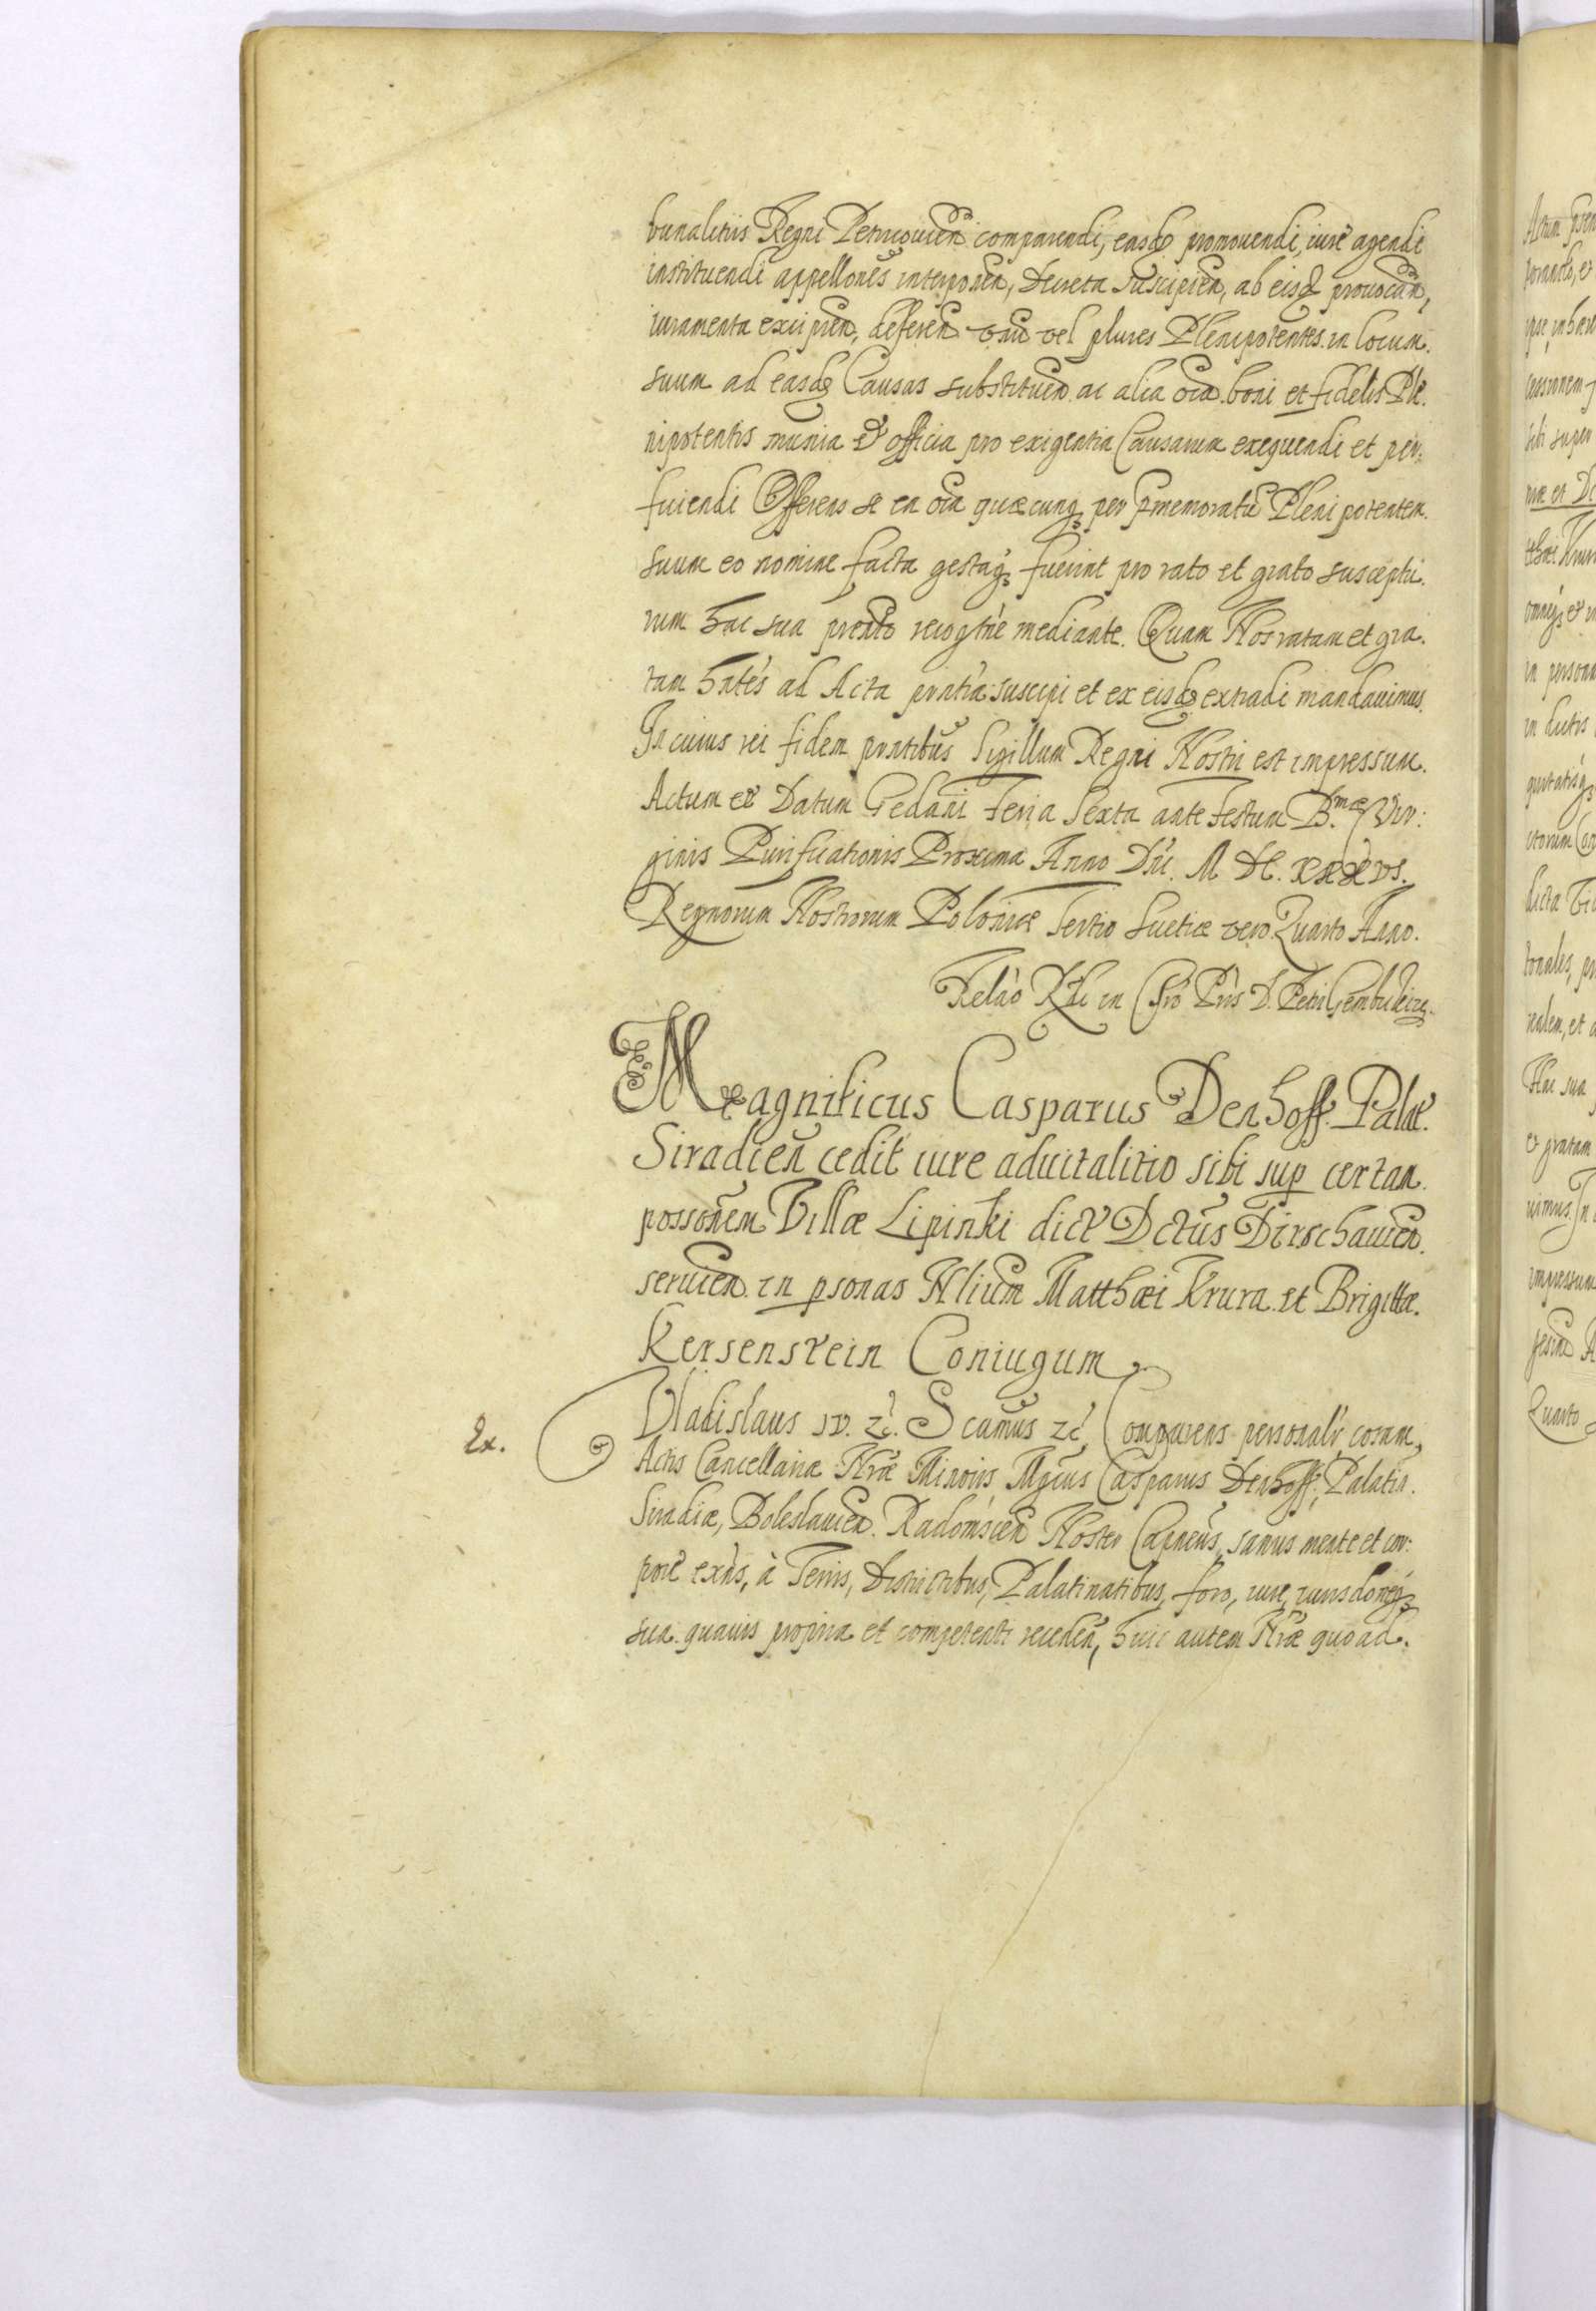 bunalitiis Regni Petricouien comparendi, easdq promouendi, iure agendi
instituendi appellones interponen, Decreta suscipien, ab eisdq prouocan,
iuramenta excipien, deferen vnu vel plures Plenipotentes in locum
suum ad easdq Causas substituen ac alia oia boni et fidelis Ple.
nipotentis munia et officia pro exigentia Causarum exequendi et per:
ficiendi Offerens se ea oia quæcunq per pmemoratu Plenipotentem
suum eo nomine facta gestaq fuerint pro rato et grato susceptu.
rum hac sua pnti recogne mediante. Quam Nos ratam et gra.
tam hntes ad Acta pntia suscipi et ex eisdq extradi mandauimus.
In cuius rei fidem pntibus Sigillum Regni Nostri est impressum.
Actum et Datum Gedani Feria Sexta ante Festum B.mæ Vir:
ginis Purificationis Proxima Anno Dni. M DC. XXXVI.
Regnorum Nostrorum Poloniæ Tertio Suetiæ vero Quarto Anno.
Relao Rdi in Chro Pris D. Petri Gembicki
Magnificus Casparus Denhoff Palat.
Siradien cedit iure aduitalitio sibi sup certam
possonem Villæ Lipinki dict Dctus Dirschauien.
seruien in psonas Nlium Matthæi Krura et Brigittæ
Kersenstein Coniugum
Ex. Vladislaus IV. zc. S camus zc, Comparens personalr coram
Actis Cancellariæ Nræ Minoris Mgcus Casparus Denhoff, Palatin.
Siradiæ, Boleslauien. Radomscien Noster Capneus, sanus mente et cor:
pore exns, à Terris, Districtibus, Palatinatibus, foro, iure, iurisdoneq
sua quauis propria et competenti receden, huic autem Nræ quo ad